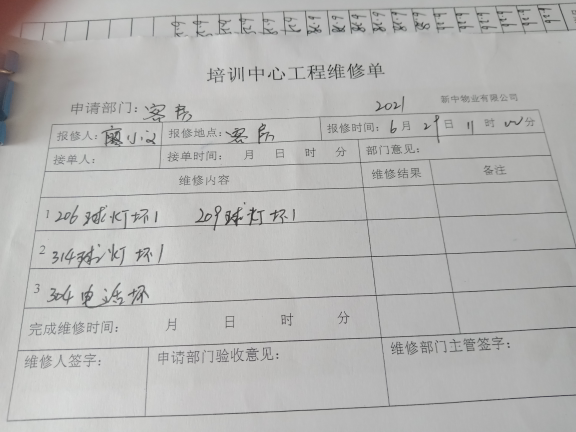 培训中心工程维修单
申请部门：客房 2021 新中物业有限公司
报修人： 小 报修地点：客房 报修时间：6月29日11时00分
接单人： 接单时间： 月 日 时 分 部门意见：
维修内容 维修结果 备注
1 206球灯坏1 209球灯坏1
2 314球灯坏1
3 304电话坏
完成维修时间： 月 日 时 分
维修人签字： 申请部门验收意见： 维修部门主管签字：